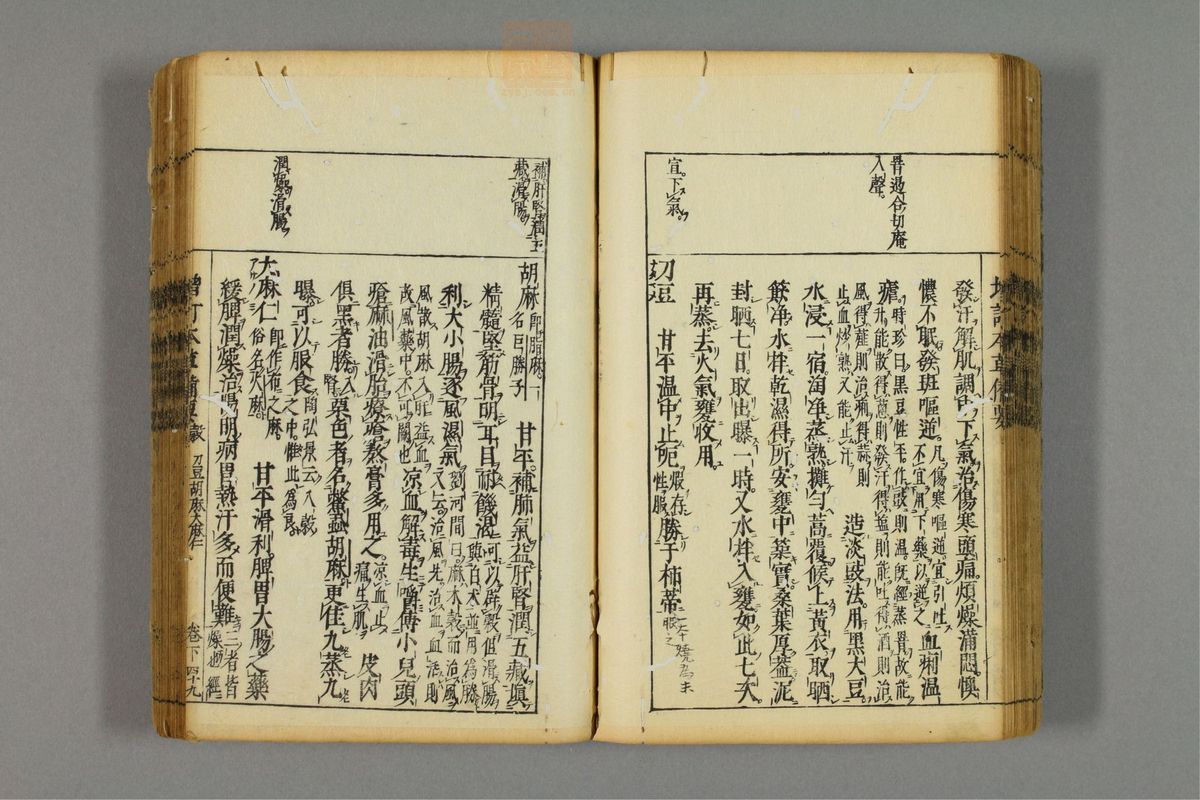 暑過合切庵
入聲。
宜下氣。
發汗解肌調中下氣治傷寒頭痛煩燥滿悶懊
憹不眠發斑嘔逆凡傷寒嘔逆宜引吐不宜用下藥以逆之血痢温
瘧時珍曰黑豆性平作豉則温既經蒸罯故能升能散得葱則發汗得鹽則能吐得酒則治
風得薤則治痢得蒜則止血炒熟又能止汗造淡豉法用黑大豆
水浸一宿淘净蒸熟攤匀蒿覆候上黃衣取晒
簸净水拌乾濕得所安甕中築實桑葉厚葢泥
封晒七日取出曝一時又水拌入甕如此七次
再蒸去火氣甕收用
刀豆 甘平温中止呃煆存性服勝子柿蒂
補肝腎潤五
藏滑腸
潤燥滑腸
胡麻即脂麻一名巨勝子 甘平補肺氣益肝腎潤五藏填
精髓堅筋骨明耳目耐饑渴可以辟穀但滑腸與白朮並用爲勝
利大小腸逐風濕氣劉河間曰麻木穀而治風又云治風先治血血活則
風散胡麻入肝益血故風藥中不可闕也凉血解毒生嚼傅小兒頭
瘡麻油滑胎療瘡熬膏多用之凉血止痛生肌皮肉
俱黑者勝入腎栗色者名鱉蝨胡麻更佳九蒸九
曝可以服食陶弘景云八穀之中惟此爲良
大麻仁即作布之麻俗名火麻 甘平滑利脾胃大腸之藥
緩脾潤燥治陽明病胃熱汗多而便難三者皆燥也
刀豆胡麻大麻仁 卷下 四十九